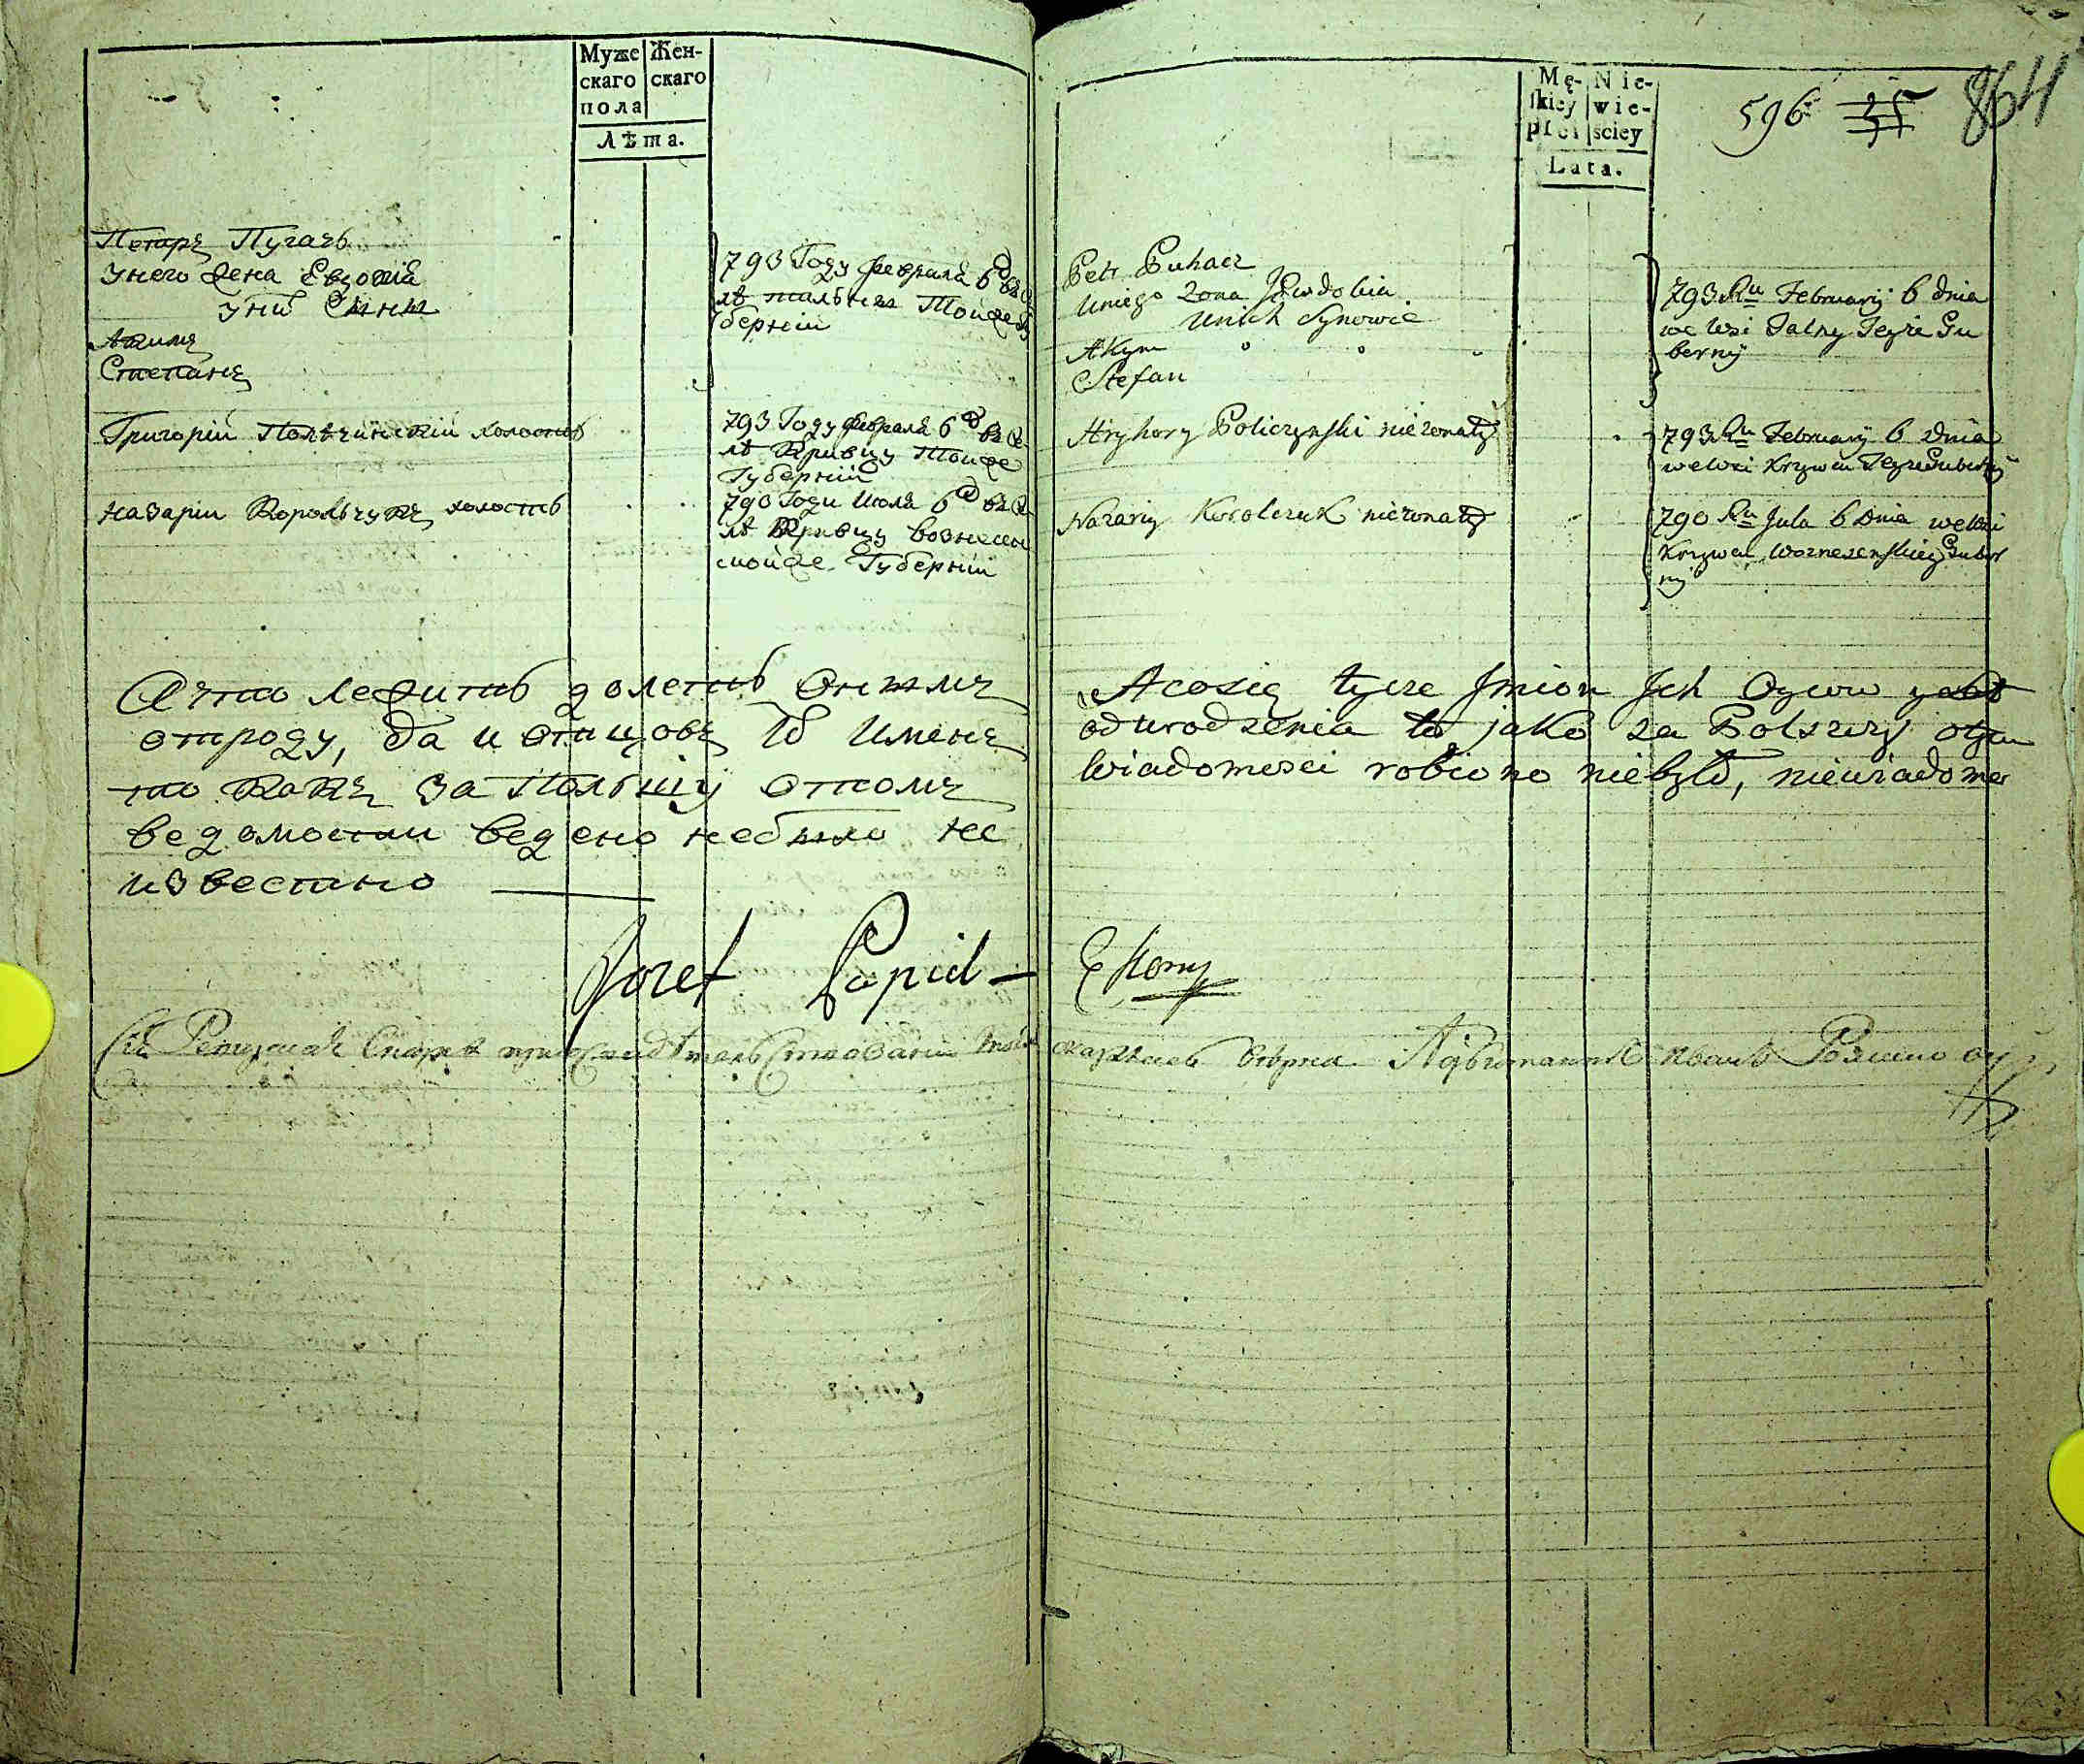 Муже
скаго
пола
Жен-
скаго
Лѣта.
Петръ Пугачь
Унего жена Евдокія
Уних Сыны
Акимъ
Степанъ
793 Году февраля 6д въ се
лѣ тальнем Той же Гу
берніи
Григорій Полѣчинскій холостъ
793 Году февраля 6д въ се
лѣ Кривцу Той же
Губерніи
Назаріи Корольчукъ холостъ
790 Году Июля 6д въ се
лѣ Кривцу вознесен
ской же Губерніи
А что лежитъ до летъ онымъ
от роду, да и отцовъ Их Именъ
то какъ за Польщу о томъ
ведомости ведено небыло не
известно
Jozef Papiel
Сія Ревизская Сказка при
Mę-
skiey
płci
Nie-
wie-
ściey
Lata.
596
864
Petr Puhacz
Uniego Zona Jewdokia
Unich Synowie
Akym
Stefan
793 Ru February 6 dnia
we Wsi Talny Teyże Gu
berny
Hryhory Policzynski nieżonaty
793 Ru February 6 Dnia
we Wsi Krzywcu Teyże Guberny
Nazary Korolczuk nieżonaty
790 Ru Jula 6 Dnia we Wsi
Krzywcu Woznesenskiey Guber
ny
A co się tycze Jmion Jch Oycow y lat
od urodzenia to jako za Polszczy o tym
Wiadomosci robiono niebyło, niewiadomo
Ekony